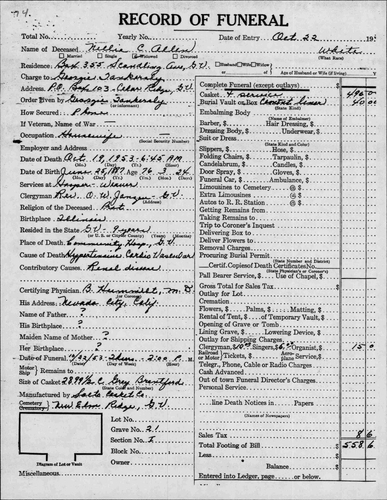 RECORD OF FUNERAL
Total No. Yearly No. Date of Entry Oct. 22 195
Name of Deceased Nillie C. Allen White
Married Single Widowed Divorced (What Race)
Residence: Box 355 Ave, G.V. Husband Wife Widow
Charge to Georgie Tankersly Age of Husband or Wife (if living)
Address P.O. Box 103 Cedar Ridge, G.V.
Order Given by Georgie Tankersly
How Secured Phone
If Veteran, Name of War
Occupation Housewife
(Social Security Number)
Employer and Address
Date of Death Oct. 19, 1953 - 6:45 AM
Date of Birth June 25, 1877 Age 76 - 3 - 24
Services at Hooper - Weaver
Clergyman Rev. O. W. G.V.
Religion of the Deceased Prot.
Birthplace Illinois
Resided in the State G.V. years
Place of Death Community Hosp, G.V.
Cause of Death Hypertensive Cardio Vascular
Contributory Causes Renal disease
Certifying Physician B. Hummelt, M.D.
His Address Nevada City, Calif.
Name of Father ?
His Birthplace ?
Maiden Name of Mother ?
Her Birthplace ?
Date of Funeral 10/22/53 - Thurs. 2:00 P.M.
Motor Ship Remains to
Size of Casket Grey
Manufactured by Sacto Casket Co.
Cemetery Crematory New Elm Ridge, G.V.
Lot No.
Grave No. 21
Section No. I
Block No.
Owner
Diagram of Lot or Vault
Miscellaneous
Complete Funeral (except outlays) $
Casket & services 495 00
Burial Vault or Box 40 00
Embalming Body
Barber, $ Hair Dressing, $
Dressing Body, $ Underwear, $
Suit or Dress
Slippers, $ Hose, $
Folding Chairs, $ Tarpaulin, $
Candelabrum, $ Candles, $
Door Spray, $ Gloves, $
Funeral Car, $ Ambulance, $
Limousines to Cemetery @ $
Extra Limousines @ $
Autos to R. R. Station @ $
Getting Remains from
Taking Remains to
Trip to Coroner's Inquest
Delivering Box to
Deliver Flowers to
Removal Charges
Procuring Burial Permit
Certif. Copies of Death Certificate No.
Pall Bearer Service, $ Use of Chapel, $
Gross Total for Sales Tax $
Outlay for Lot
Cremation
Flowers, $ Palms, $ Matting, $
Rental of Tent, $ of Temporary Vault, $
Opening of Grave or Tomb
Lining Grave, $ Lowering Device, $
Outlay for Shipping Charges
Clergyman, $10.00 Singers, $ Organist, $ 15 0
Railroad Motor Tickets, $ Aeroplane Service, $
Telegr., Phone, Cable or Radio Charges
Cash Advanced
Out of town Funeral Director's Charges
Personal Service
line Death Notices in Papers
(Names of Newspapers)
Sales Tax 8 6
Total Footing of Bill 558 6
Less
Balance $
Entered into Ledger, page or below.